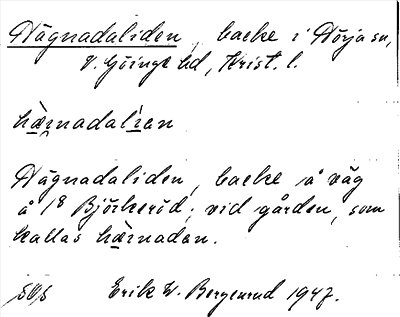 Hägnadaliden, backe i Nörja sn,
V. Göinge hd, Krist. l.
hæ̱rnadali̱an
Hägnadaliden, backe å väg
å 1⁸ Björkeröd; vid gården, som
kallas hæ̱rnadan.
Erik W. Bergenrud 1947.